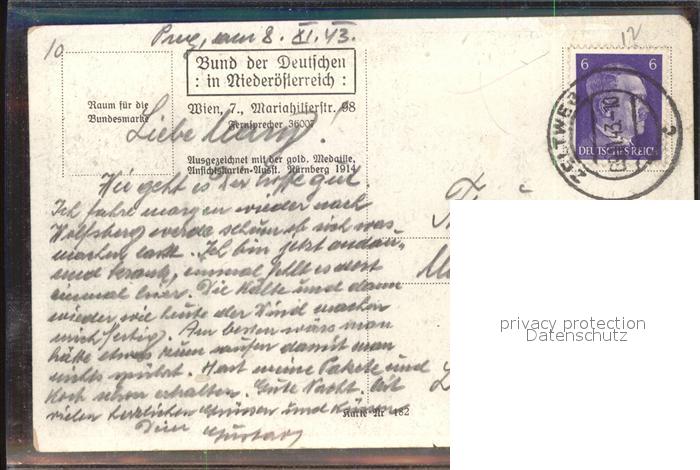 10
Prug, am 8. XI. 43.
12
Bund der Deutschen
: in Niederösterreich :
Raum für die
Bundesmarke
Wien, 7., Mariahilferstr. 98
Fernsprecher 36007
Liebe
Ausgezeichnet mit der gold. Medaille,
Ansichtskarten-Ausst. Nürnberg 1914
6 6
DEUTSCHES REICH
ZELTWEG
Wie geht es Dir hoffe gut.
Ich fahre morgen wieder nach
Wolfsberg werde schaun ob sich was
machen lasst. Ich bin jetzt andau-
ernd krank, einmal fehlt es dort
einmal hier. Die Kälte und dann
wieder wie heute der Wind machen
mich fertig. Am besten wärs man
hätte etwas zum saufen damit man
nichts spührt. Hast meine Pakete und
Koch schon erhalten. Gute Nacht. Mit
vielen herzlichen Grüssen und Küssen
Dein Gustav
Karte Nr 482
privacy protection
Datenschutz